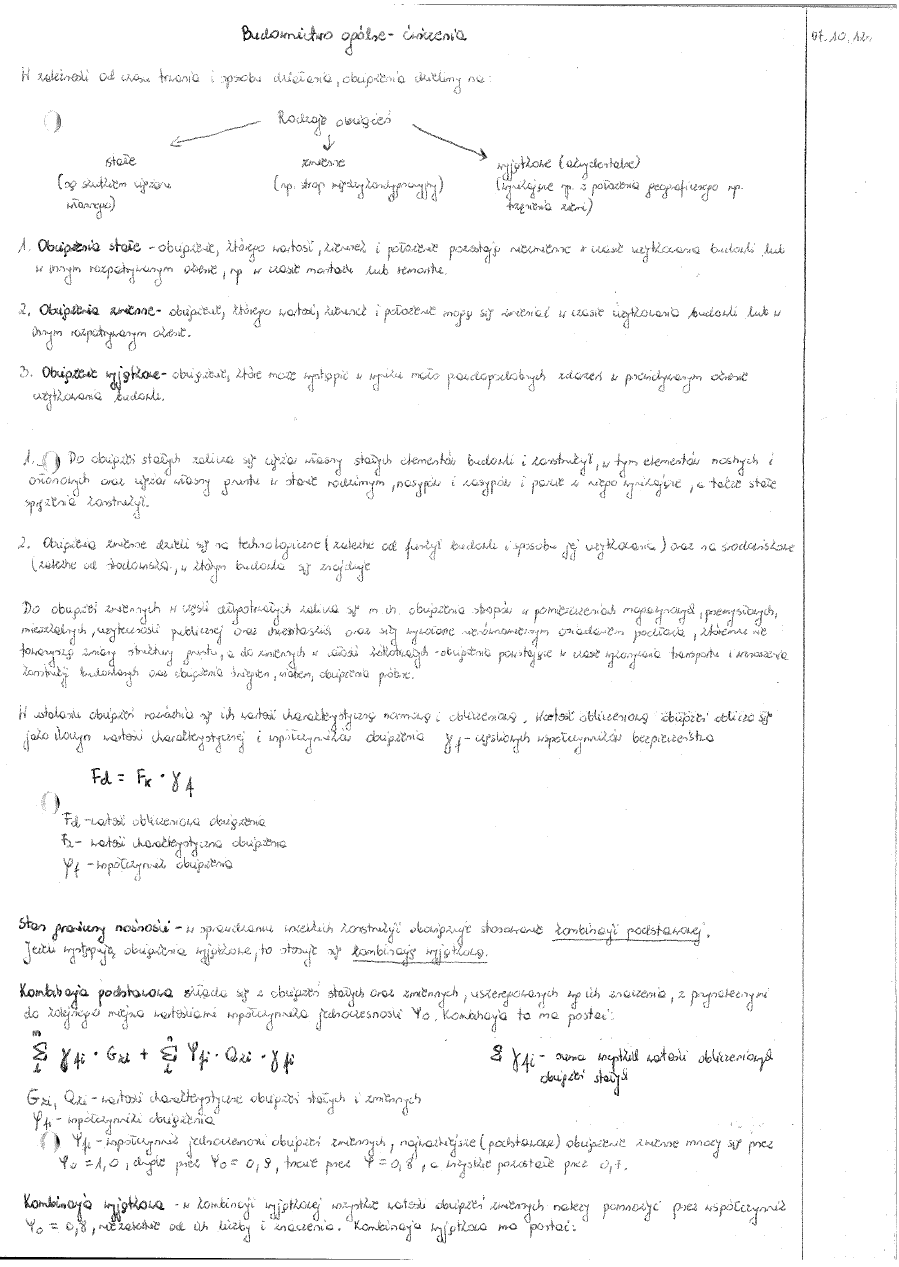 Budownictwo ogólne - ćwiczenia
07.10.12r.
W zależności od czasu trwania i sposobu działania, obciążenia dzielimy na:
Rodzaje obciążeń
stałe
zmienne
wyjątkowe (akcydentalne)
(są skutkiem ciężaru własnego)
(np. strop międzykondygnacyjny)
(wynikające np. z położenia geograficznego np. trzęsienia ziemi)
1. Obciążenia stałe - obciążenie, którego wartość, kierunek i położenie pozostają niezmienne w czasie użytkowania budowli lub
w innym rozpatrywanym okresie, np w czasie montażu lub remontu.
2. Obciążenia zmienne - obciążenie, którego wartość, kierunek i położenie mogą się zmieniać w czasie użytkowania budowli lub w
innym rozpatrywanym okresie.
3. Obciążenie wyjątkowe - obciążenie, które może wystąpić w wyniku mało prawdopodobnych zdarzeń w przewidywanym okresie
użytkowania budowli.
1. Do obciążeń stałych zalicza się ciężar własny stałych elementów budowli i konstrukcji, w tym elementów nośnych i
osłonowych oraz ciężar własny gruntu w stanie rodzimym, nasypów i zasypów i parcie z niego wynikające, a także stałe
sprężenie konstrukcji.
2. Obciążenia zmienne dzieli się na technologiczne (zależne od funkcji budowli i sposobu jej użytkowania) oraz na środowiskowe
(zależne od środowiska, w którym budowla się znajduje
Do obciążeń zmiennych w części długotrwałych zalicza się m.in. obciążenia stropów w pomieszczeniach magazynowych, przemysłowych,
mieszkalnych, użyteczności publicznej oraz inwentarskich oraz siły wywołane nierównomiernym osiadaniem podłoża, któremu nie
towarzyszą zmiany struktury gruntu, a do zmiennych w całości krótkotrwałych - obciążenia powstające w czasie wykonywania transportu i wznoszenia
konstrukcji budowlanych oraz obciążenia śniegiem, wiatrem, obciążenia próbne.
W ustalaniu obciążeń rozróżnia się ich wartość charakterystyczną normową i obliczeniową. Wartość obliczeniową obciążeń oblicza się
jako iloczyn wartości charakterystycznej i współczynników obciążenia γf - częściowych współczynników bezpieczeństwa
Fd = Fk · γf
Fd - wartość obliczeniowa obciążenia
Fk - wartość charakterystyczna obciążenia
γf - współczynnik obciążenia
Stan graniczny nośności - w sprawdzaniu wszelkich konstrukcji obowiązuje stosowanie kombinacji podstawowej.
Jeżeli występują obciążenia wyjątkowe, to stosuje się kombinację wyjątkową.
Kombinacja podstawowa składa się z obciążeń stałych oraz zmiennych, uszeregowanych wg ich znaczenia, z przynależnymi
do kolejnego miejsca wartościami współczynnika jednoczesności Ψo. Kombinacja ta ma postać:
m Σ i γfi · Gki + n Σ i Ψfi · Qki · γfi
Σ γfi - suma wszystkich wartości obliczeniowych
obciążeń stałych
Gki, Qki - wartości charakterystyczne obciążeń stałych i zmiennych
γfi - współczynniki obciążenia
Ψfi - współczynnik jednoczesności obciążeń zmiennych, najważniejsze (podstawowe) obciążenie zmienne mnoży się przez
Ψo = 1,0, drugie przez Ψo = 0,9, trzecie przez Ψ = 0,8, a wszystkie pozostałe przez 0,7.
Kombinacja wyjątkowa - w kombinacji wyjątkowej wszystkie wartości obciążeń zmiennych należy pomnożyć przez współczynnik
Ψo = 0,8, niezależnie od ich liczby i znaczenia. Kombinacja wyjątkowa ma postać: